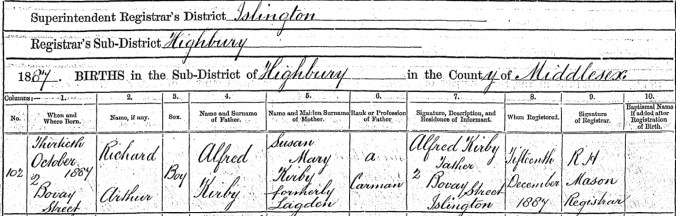 Superintendent Registrar's District Islington
Registrar's Sub-District Highbury
1887. BIRTHS in the Sub-District of Highbury in the County of Middlesex
Columns:— 1. 2. 3. 4. 5. 6. 7. 8. 9. 10.
No. When and Where Born. Name, if any. Sex. Name and Surname of Father. Name and Maiden Surname of Mother. Rank or Profession of Father Signature, Description, and Residence of Informant. When Registered. Signature of Registrar. Baptismal Name If added after Registration of Birth.
102
Thirtieth
October
1887
2
Bovay
Street
Richard
Arthur
Boy
Alfred
Kirby
Susan
Mary
Kirby
formherly
Lagdon
a
Carman
Alfred Kirby
Father
2
Bovay Street
Islington
Fifteenth
December
1887
R H
Mason
Registrar